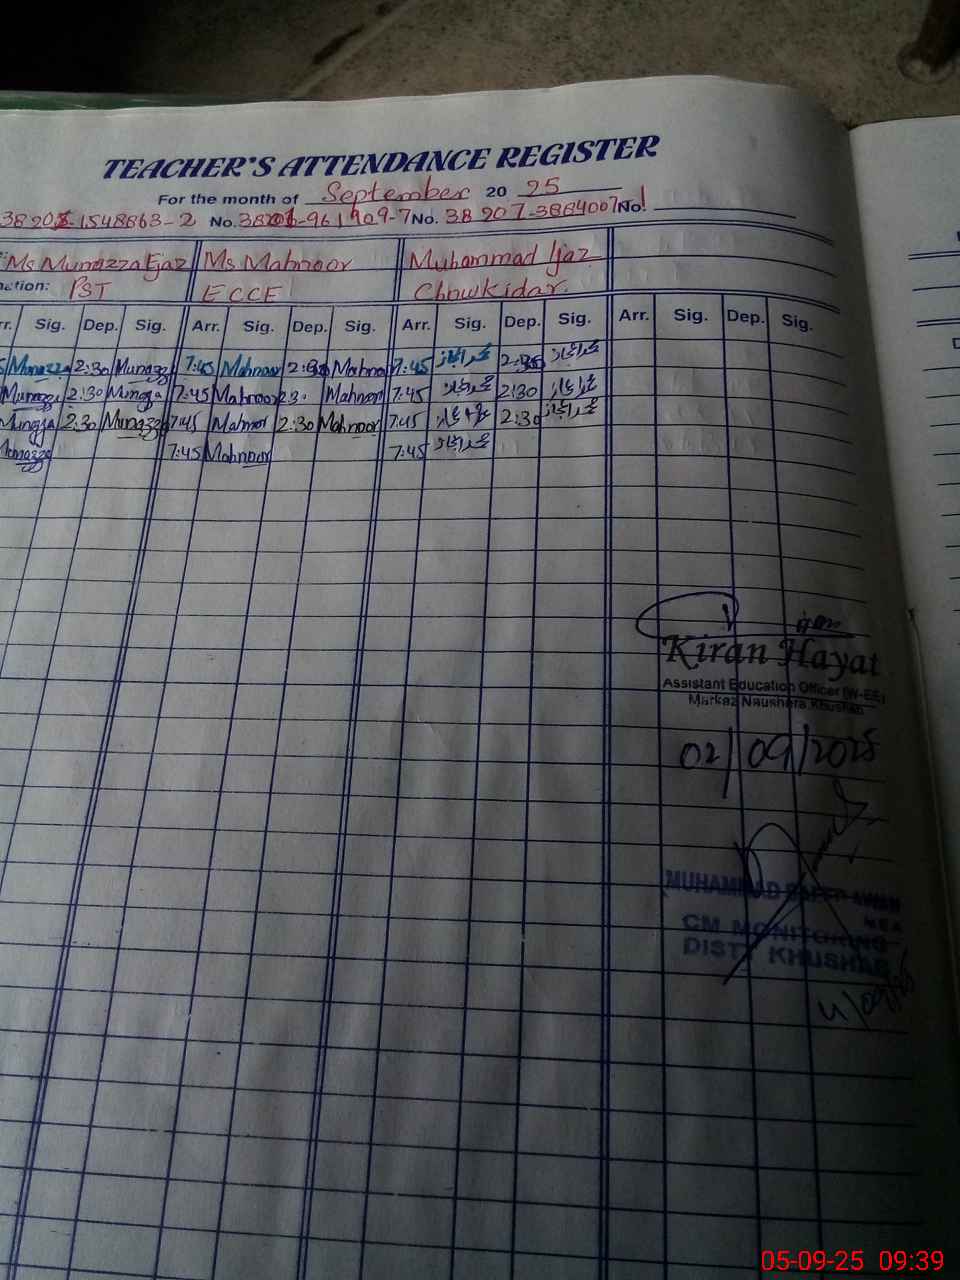 TEACHER'S ATTENDANCE REGISTER
For the month of September 20 25
1548863-2 No. No. 38207-3884007 No.
Ms Munazza Ejaz Ms Mahnoor Muhammad Ijaz
nation: PST ECCE Chowkidar.
rr. Sig. Dep. Sig. Arr. Sig. Dep. Sig. Arr. Sig. Dep. Sig. Arr. Sig. Dep. Sig.
Munazza 2:30 Munazza 7:45 Mahnoor Mahnoor 7:45 محمد اعجاز محمد اعجاز
Munazza 2:30 Munazza 7:45 Mahnoor 2:30 Mahnoor 7:45 محمد اعجاز 2:30 محمد اعجاز
Munazza 2:30 Munazza 7:45 Mahnoor 2:30 Mahnoor 7:45 محمد اعجاز 2:30 محمد اعجاز
Munazza 7:45 Mahnoor 7:45 محمد اعجاز
Kiran Hayat
Assistant Education Officer (W-EE)
Markaz Naushera Khushab
02/09/2025
MUHAMMAD SAEED AWAN
MEA
CM MONITORING
DISTT KHUSHAB
05-09-25 09:39